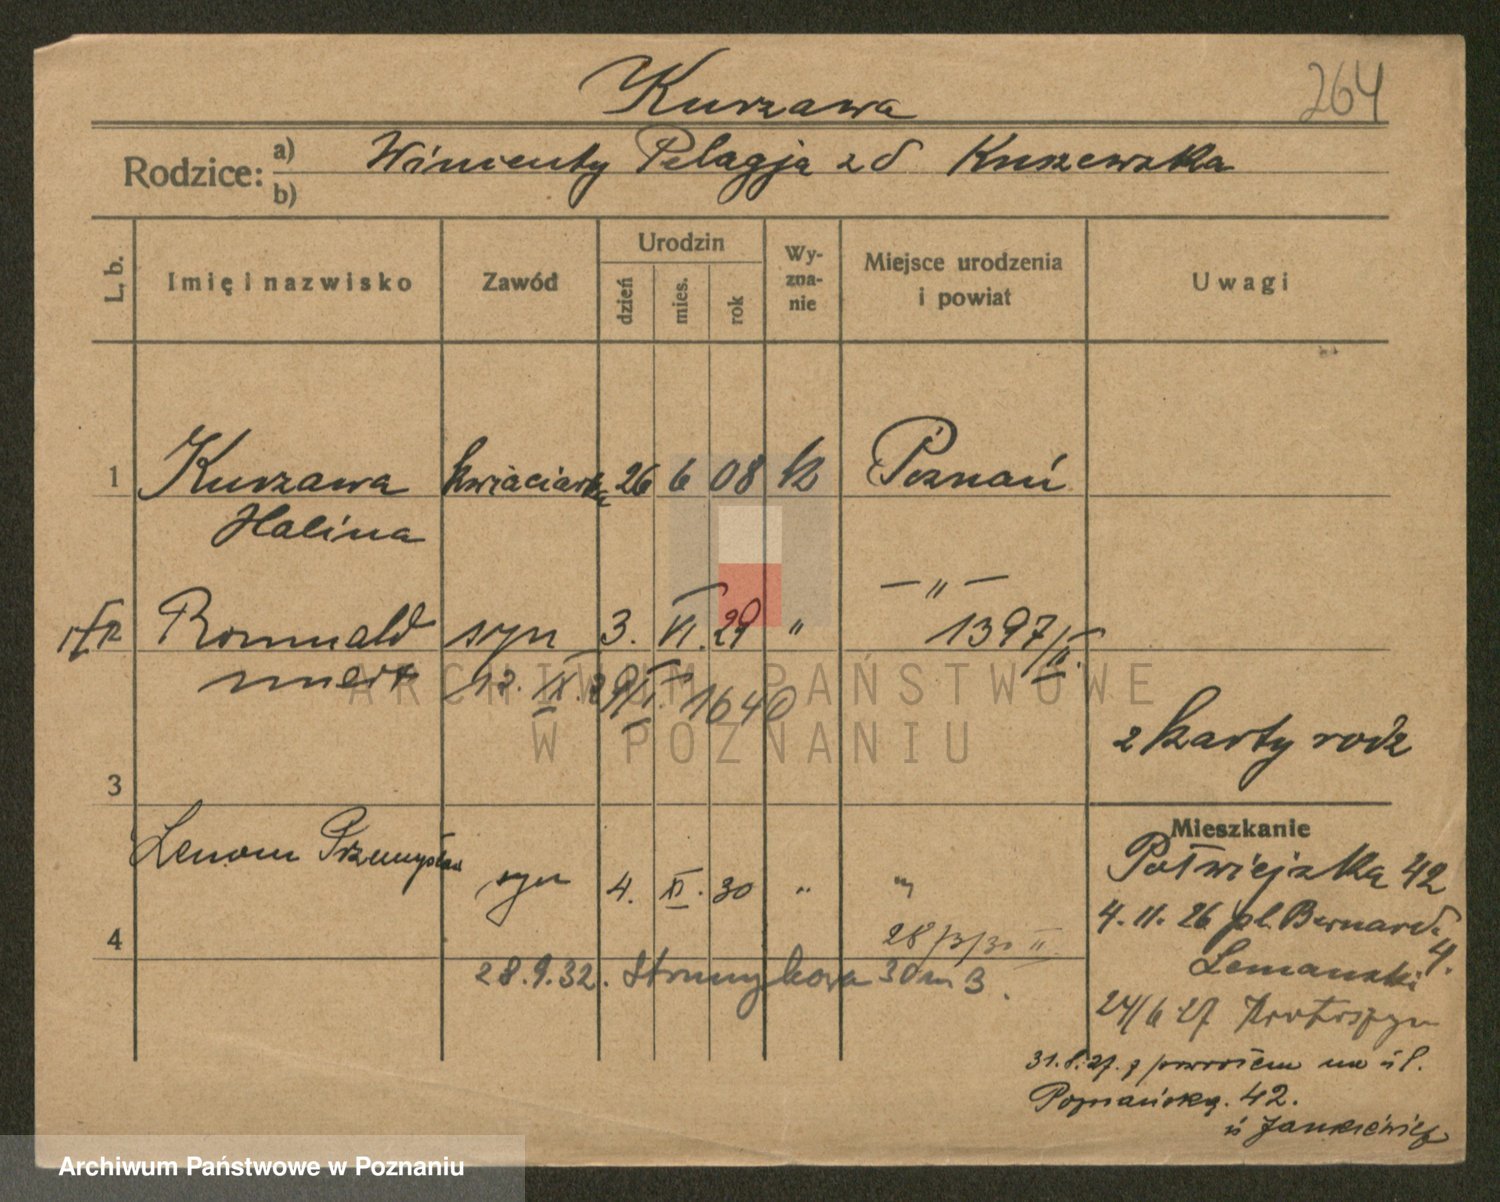 264
Kurzawa
Rodzice: a) Wincenty Pelagja zd Kuszewska
b)
L. b. Imię i nazwisko Zawód Urodzin dzień mies. rok Wy-zna-nie Miejsce urodzenia i powiat Uwagi
1 Kurzawa kwiaciarka 26 6 08 k Poznań
Halina
— " —
Romuald syn 3. VI. 29 " 1397/II.
umarł 12. IX. 29/II. 1640
z karty rodz
3
Mieszkanie
Lenom Przemysław syn 4. XI. 30 " "
Półwiejska 42
4. 11. 26 pl. Bernard. 4.
28/3/30 II
4
Lemański
28.9.32. Strumykowa 30 m 3.
24/6 27 Krotoszyn
31.8.27. z powrotem na ul.
Poznańską. 42.
u Jankiewicz
ARCHIWUM PAŃSTWOWE
W POZNANIU
Archiwum Państwowe w Poznaniu